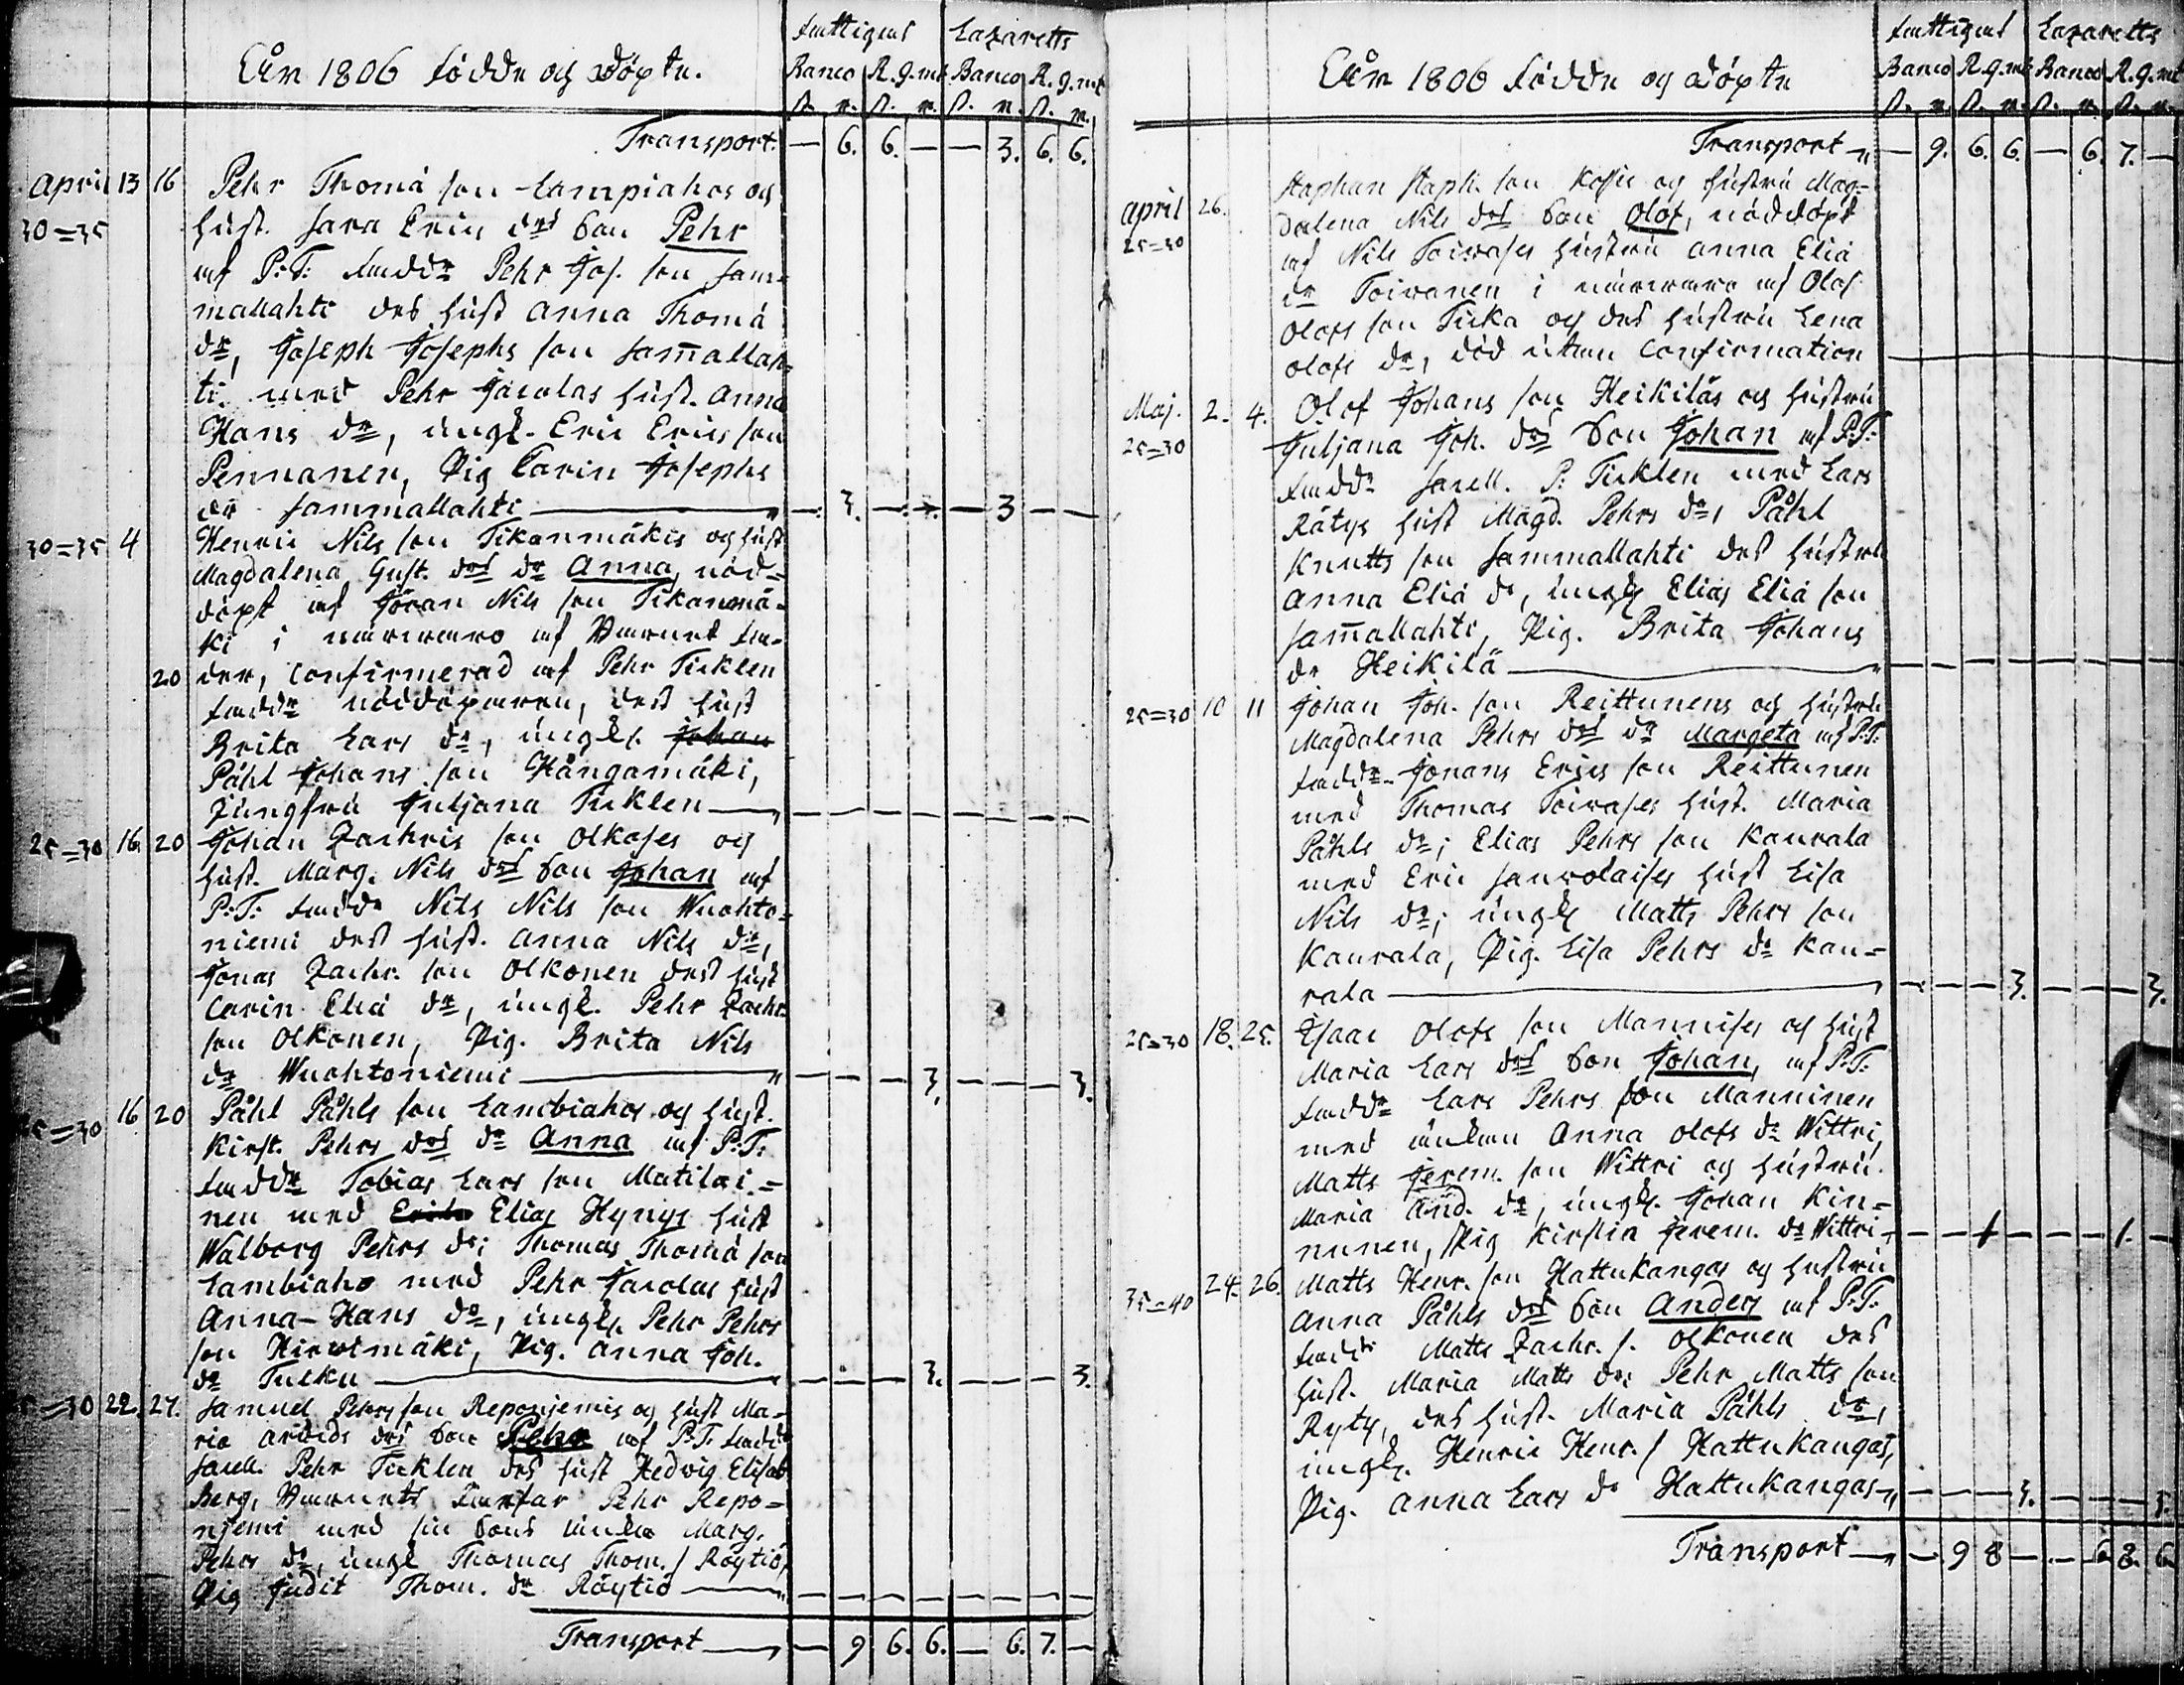 Åhr 1806 födde och döpte.
Fattigas Lazaretts
Banco R.g.mt Banco R.g.mt
s. r. s. r. s. r. s. r.
Transport. — 6. 6. — — 3. 6. 6.
April 13 16 Pehr Thomä son Lampiahos och
30=35 hust. Sara Erics drs son Pehr
af P:T: faddr Pehr Jos. son Sam-
mallahti des hust Anna Thomä
dr, Joseph Josephs son Sam̄allah-
ti med Pehr Jacolas hust. Anna
Hans dr, ungk. Eric Erics son
Pennanen, Pig Carin Josephs
dr Sammallahti — 3. — — — 3 — —
30=35 4 Henric Nils son Tikanmäkis och hust
Magdalena Gust. drs dr Anna, nöd-
döpt af Göran Nils son Tikanmä-
ki i närwaro af Barnet fa-
20 der, confirmerad af Pehr Ticklen
faddr nöddöparen, dess hust
Brita Lars dr, ungk. Johan
Påhl Johans son Hångamäki,
Jungfru Juljana Ticklen — — — — — — — —
25=30 16 20 Johan Zachris son Olkoses och
hust. Marg. Nils drs son Johan af
P:T: faddr Nils Nils son Wuohto-
niemi dess hust. Anna Nils dr,
Jonas Zachr. son Olkonen dess hust
Carin Eliä dr, ungk. Pehr Zachr.
son Olkonen, Pig. Brita Nils
dr Wuohtoniemi — — — 3. — — — 3.
25=30 16 20 Påhl Påhls son Lambiahos och hust.
Kirst. Pehrs drs dr Anna af P:T:
faddr Tobias Lars son Matilai-
nen med Elias Hynys hust
Walborg Pehrs dr; Thomas Thomä son
Lambiaho med Pehr Jacolas hust
Anna Hans dr, ungk. Pehr Pehrs
son Hirwimäki, Pig. Anna Joh.
dr Tulku — — — 3. — — — 3.
25=30 22. 27. Samuel Pehrs son Reponjemis och hust Ma-
ria Arvids drs son Pehr af P:T: faddr
Sacell. Pehr Ticklen des hust Hedvig Elisab.
Berg, Barnets farfar Pehr Repo-
njemi med sin sons änka Marg.
Pehrs dr, ungk Thomas Thom. s Röytiö,
Pig Judit Thom. dr Röytiö — — — — — — — —
Transport — 9 6. 6. — 6. 7. —
Åhr 1806 födde och döpte
Fattigas Lazaretts
Banco R.g.mt Banco R.g.mt
s. r. s. r. s. r. s. r.
Transport — 9. 6. 6. — 6. 7. —
April 26. Staphan Staph. son Kossis och hustru Mag-
25=30 dalena Nils drs son Olof, nöddöpt
af Nils Toiwases hustru Anna Eliä
dr Toiwanen i närwaro af Olof
Olofs son Tuka och des hustru Lena
Olofs dr, död utan confirmation — — — — — — — —
Maj. 2. 4. Olof Johans son Heikiläs och hustru
25=30 Juljana Joh. drs son Johan af P:T:
faddr Sacell. P: Ticklen med Lars
Rätys hust Magd. Pehrs dr, Påhl
Knutts son Sammallahti des hustru
Anna Eliä dr, ungk Elias Eliä son
Sam̄allahti, Pig. Brita Johans
dr Heikilä — — — — — — — —
25=30 10 11 Johan Joh. son Reittunens och hustru
Magdalena Pehrs drs dr Margeta af P:T:
faddr Jonans Erics son Reittunen
med Thomas Toiwases hust. Maria
Påhls dr; Elias Pehrs son Kaurala
med Eric Sawolaises hust Lisa
Nils dr; ungk Matts Pehrs son
Kaurala, Pig. Lisa Pehrs dr Kau-
rala — — — 3. — — — 3.
25=30 18. 25. Isaac Olofs son Mannises och hust
Maria Lars drs son Johan, af P:T:
faddr Lars Pehrs son Manninen
med änkan Anna Olofs dr Wittri,
Matts Jerem. son Wittri och hustru
Maria And. dr, ungk. Johan Kin-
nunen, Pig Kirstin Jerem. dr Wittri — — 1 — — — 1. —
35=40 24. 26. Matts Henr. son Hattukangas och hustru
Anna Påhls drs son Anders af P:T:
faddr Matts Zachr. s. Olkonen des
hust. Maria Matts dr; Pehr Matts son
Ryty, des hust. Maria Påhls dr,
ungk. Henric Henr. s Hattukangas,
Pig. Anna Lars dr Hattukangas — — — 3. — — — 3.
Transport — 9 8 — — 6 8. 6